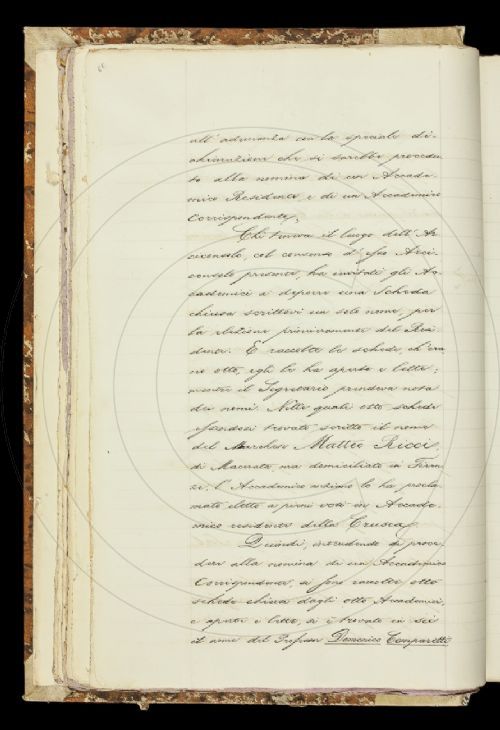 all' adunanza con la speciale di-
chiarazione che si sarebbe procedu-
to alla nomina di un Accade-
mico Residente e di un Accademico
Corrispondente.
Chi teneva il luogo dell' Ar-
ciconsolo, col consenso d' esso Arci-
consolo presente, ha invitati gli Ac-
cademici a deporre una Scheda
chiusa scrittovi un solo nome, per
la elezione primieramente del Resi-
dente. E raccolte le schede, ch' era-
no otto, egli le ha aperte e lette;
mentre il Segretario prendeva nota
dei nomi. Nelle quali otto schede
essendosi trovato scritto il nome
del Marchese Matteo Ricci,
di Macerata ma domiciliato in Firen-
ze, l' Accademico anziano lo ha procla-
mato eletto a pieni voti in Accade-
mico residente della Crusca.
Quindi, intendendo di proce-
dere alla nomina di un Accademico
Corrispondente, si sono raccolte otto
schede chiuse dagli otto Accademici,
e aperte e lette, si è trovato in sei
il nome del Professor Domenico Comparetti